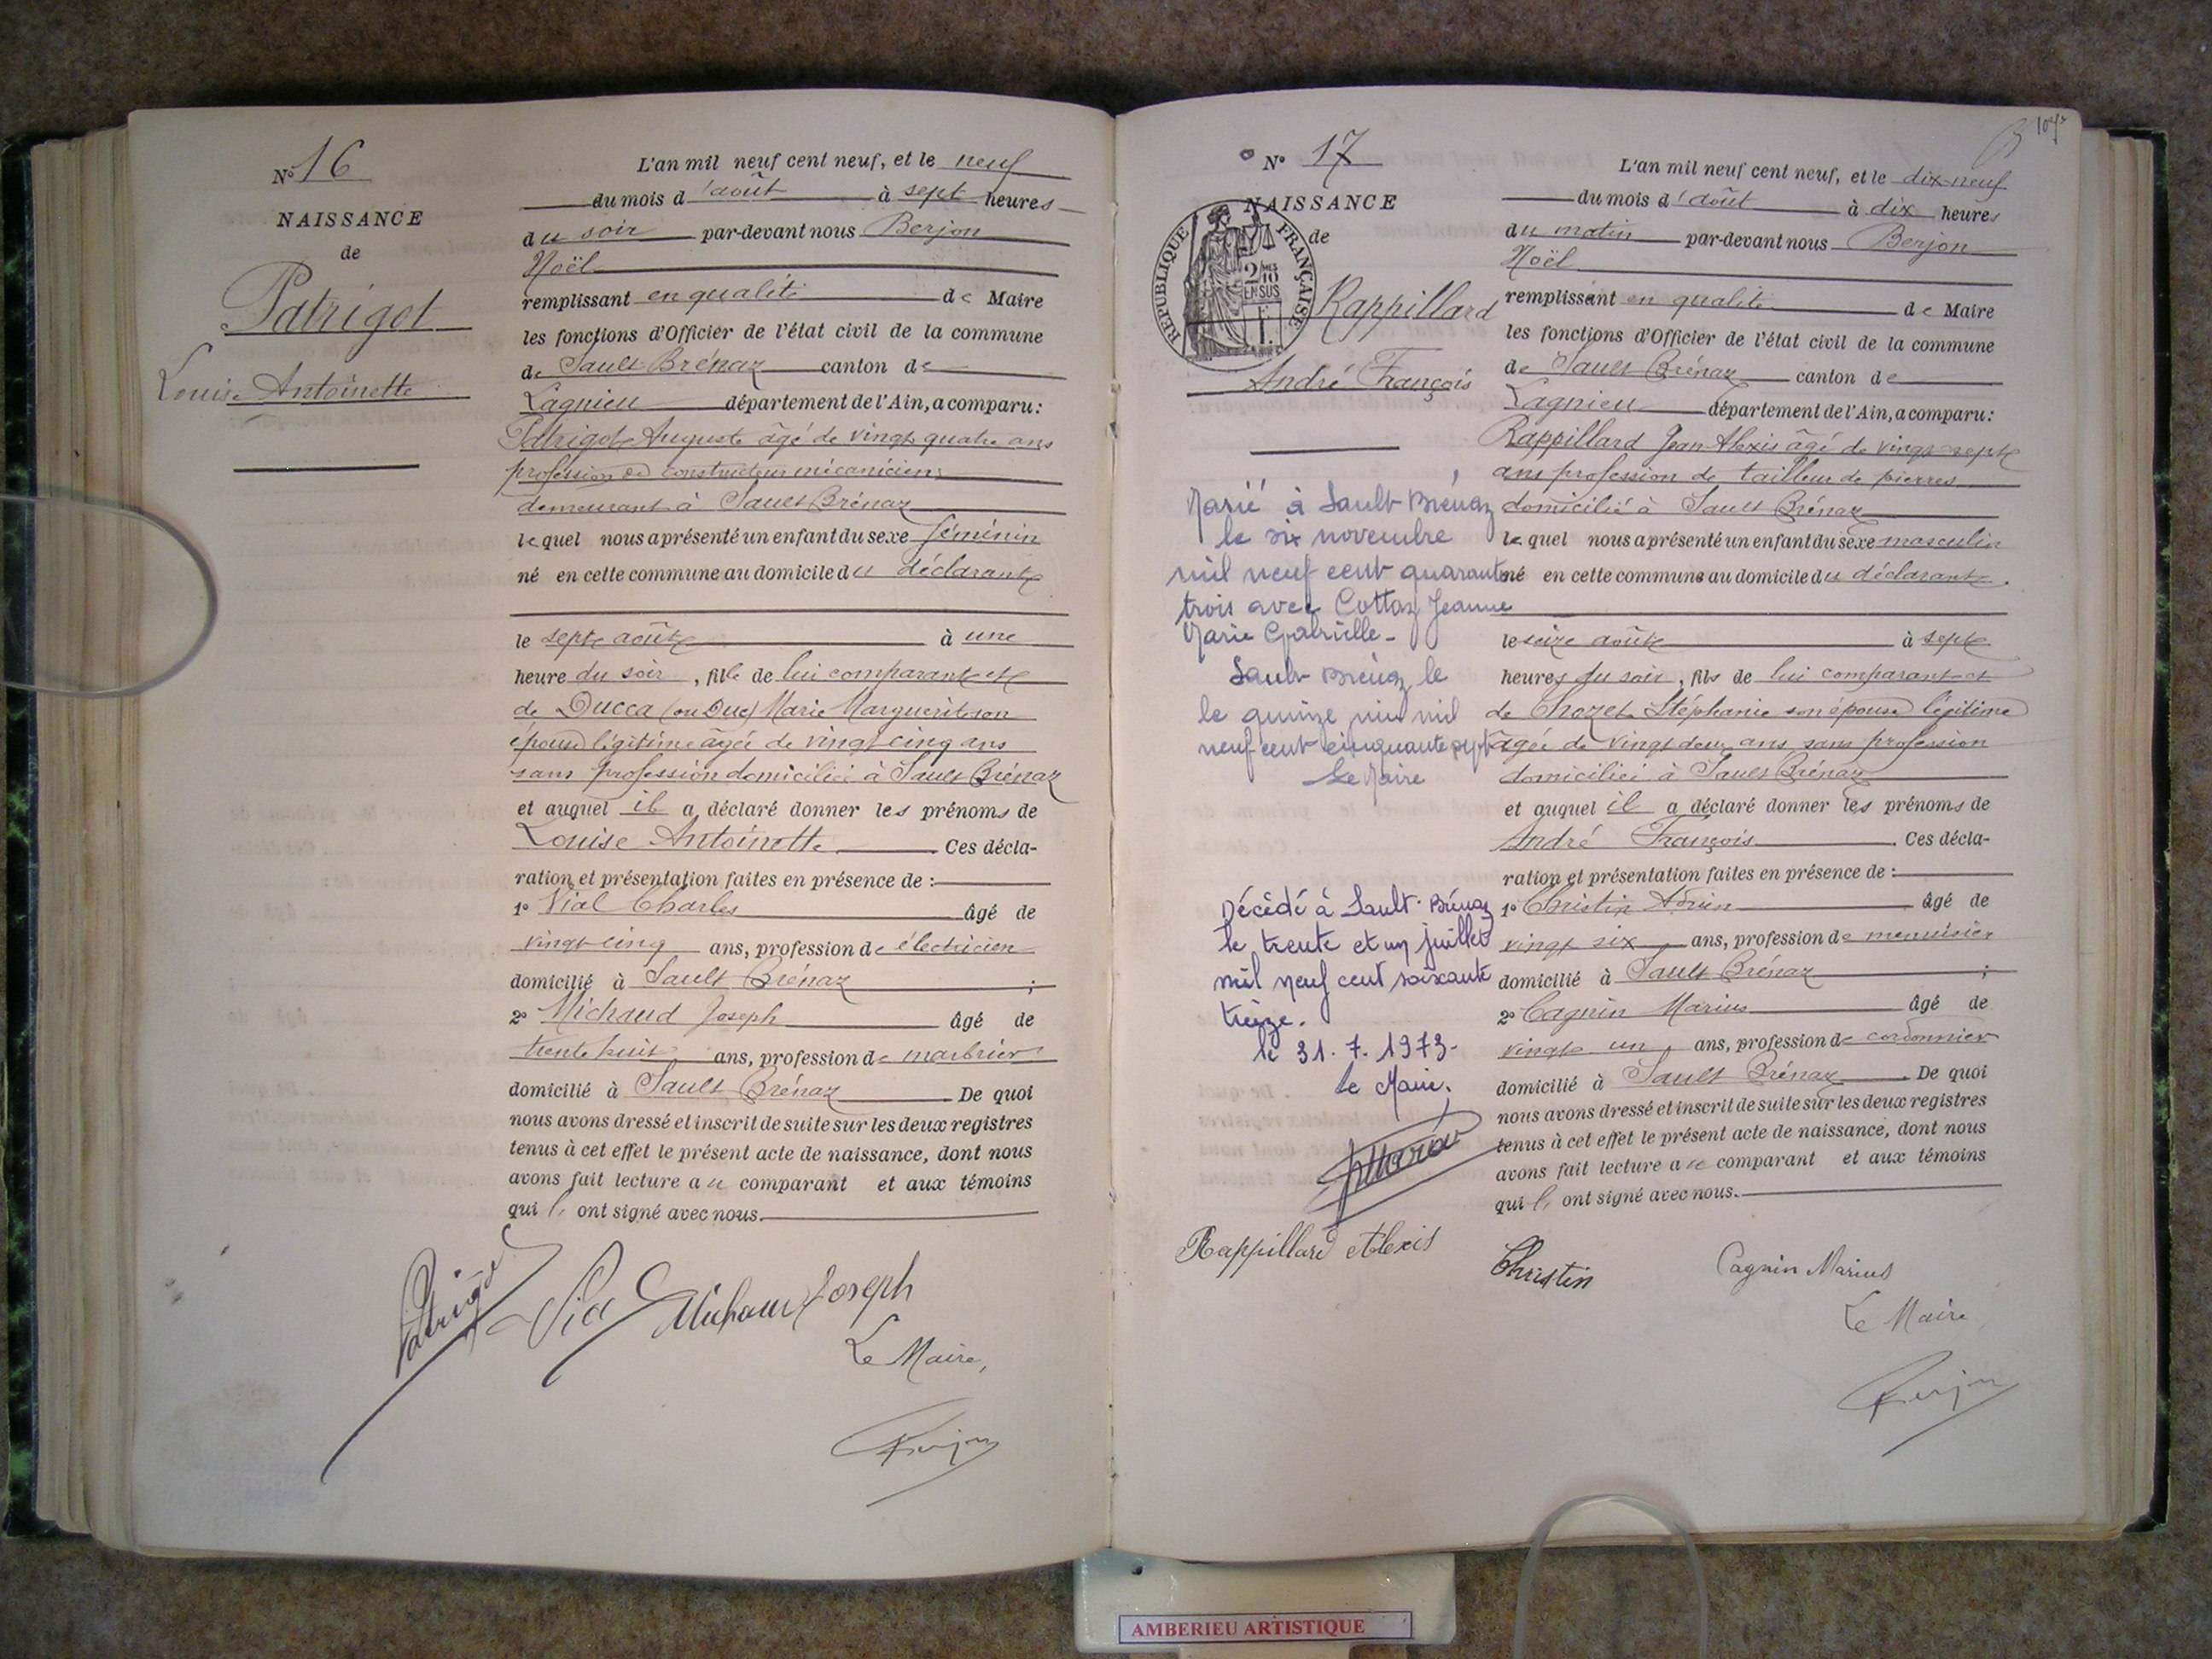 N° 16
NAISSANCE
de
Patrigot
Louise Antoinette
L'an mil neuf cent neuf, et le neuf
du mois d'août à sept heures
du soir par-devant nous Berjon
Noël
remplissant en qualité de Maire
les fonctions d'Officier de l'état civil de la commune
de Sault Brénaz canton de
Lagnieu département de l'Ain, a comparu:
Patrigot Auguste âgé de vingt quatre ans
profession de constructeur mécanicien
demeurant à Sault Brénaz
lequel nous a présenté un enfant du sexe féminin
né en cette commune au domicile du déclarant
le sept août à une
heure du soir, fille de lui comparant et
de Ducca (ou Duc) Marie Marguerite son
épouse légitime âgée de vingt cinq ans
sans profession domiciliée à Sault Brénaz
et auquel il a déclaré donner les prénoms de
Louise Antoinette. Ces décla-
ration et présentation faites en présence de :
1° Vial Charles âgé de
vingt cinq ans, profession de électricien
domicilié à Sault Brénaz ;
2° Michaud Joseph âgé de
trente huit ans, profession de marbrier
domicilié à Sault Brénaz. De quoi
nous avons dressé et inscrit de suite sur les deux registres
tenus à cet effet le présent acte de naissance, dont nous
avons fait lecture au comparant et aux témoins
qui ont signé avec nous.
Patrigot Vial Michaud Joseph
Le Maire,
Berjon
N° 17
NAISSANCE
de
REPUBLIQUE FRANÇAISE
2/10 MES
EN SUS
Rappillard
André François
Marié à Sault Brénaz
le six novembre
mil neuf cent quarante
trois avec Cottaz Jeanne
Marie Gabrielle -
Sault Brénaz le
le quinze juin mil
neuf cent cinquante sept
Le Maire
Décédé à Sault-Brénaz
le trente et un juillet
mil neuf cent soixante
treize.
le 31.7.1973-
le Maire,
L'an mil neuf cent neuf, et le dix-neuf
du mois d'août à dix heures
du matin par-devant nous Berjon
Noël
remplissant en qualité de Maire
les fonctions d'Officier de l'état civil de la commune
de Sault Brénaz canton de
Lagnieu département de l'Ain, a comparu:
Rappillard Jean Alexis âgé de vingt sept
ans profession de tailleur de pierres
domicilié à Sault Brénaz
lequel nous a présenté un enfant du sexe masculin
né en cette commune au domicile du déclarant.
le seize août à sept
heures du soir, fils de lui comparant et
de Chozet Stéphanie son épouse légitime
âgée de vingt deux ans sans profession
domiciliée à Sault Brénaz
et auquel il a déclaré donner les prénoms de
André François. Ces décla-
ration et présentation faites en présence de :
1° Christin âgé de
vingt six ans, profession de menuisier
domicilié à Sault Brénaz ;
2° Cagnin Marius âgé de
vingt un ans, profession de cordonnier
domicilié à Sault Brénaz. De quoi
nous avons dressé et inscrit de suite sur les deux registres
tenus à cet effet le présent acte de naissance, dont nous
avons fait lecture au comparant et aux témoins
qui ont signé avec nous.
Rappillard Alexis Christin Cagnin Marius
Le Maire
Berjon
AMBERIEU ARTISTIQUE